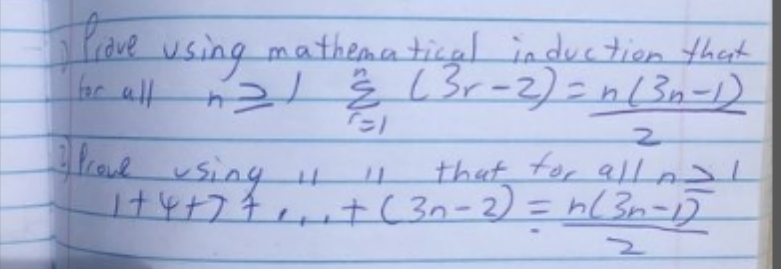 1) Prove using mathematical induction that
for all n ≥ 1 n Σ r=1 (3r-2) = n(3n-1) / 2
2) Prove using " " that for all n ≥ 1
1+4+7+...+(3n-2) = n(3n-1) / 2